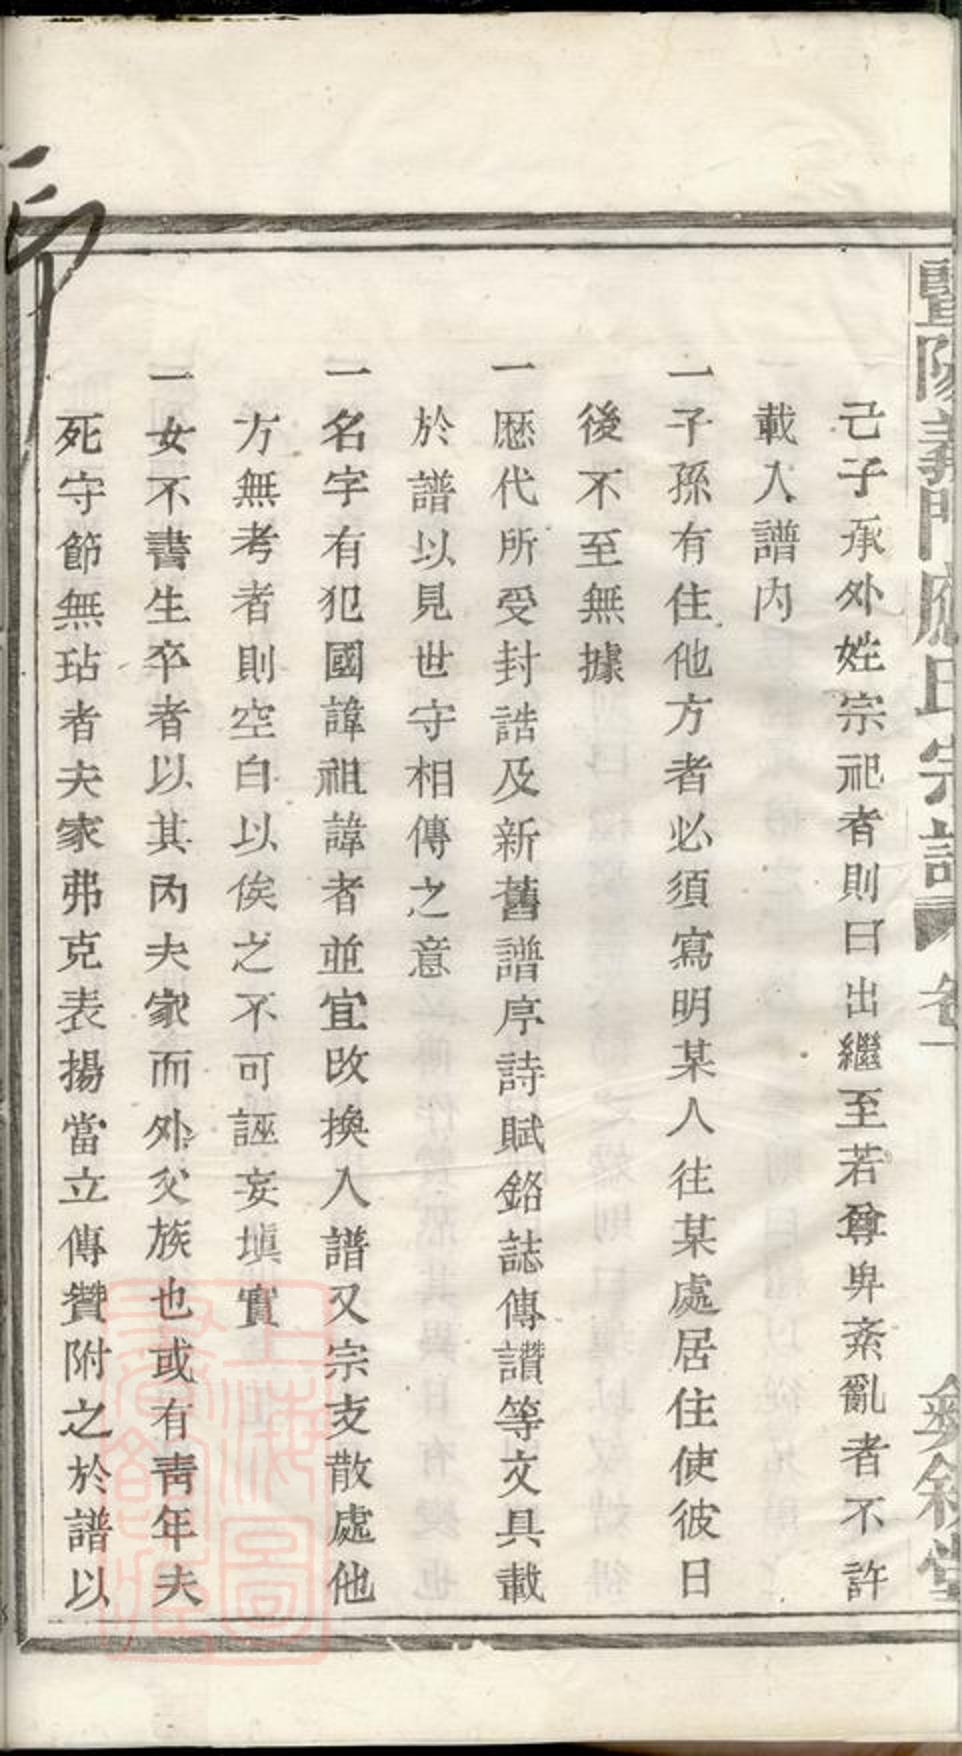 暨陽義門應氏宗譜 卷一 敘堂
己子承外姓宗祀者則曰出繼至若尊卑紊亂者不許
載入譜內
一子孫有住他方者必須寫明某人往某處居住使彼日
後不至無據
一歷代所受封誥及新舊譜序詩賦銘誌傳讚等文具載
於譜以見世守相傳之意
一名字有犯國諱祖諱者並宜改換入譜又宗支散處他
方無考者則空白以俟之不可誣妄塡實
一女不書生卒者以其內夫家而外父族也或有靑年夫
死守節無玷者夫家弗克表揚當立傳贊附之於譜以
上海圖書館藏